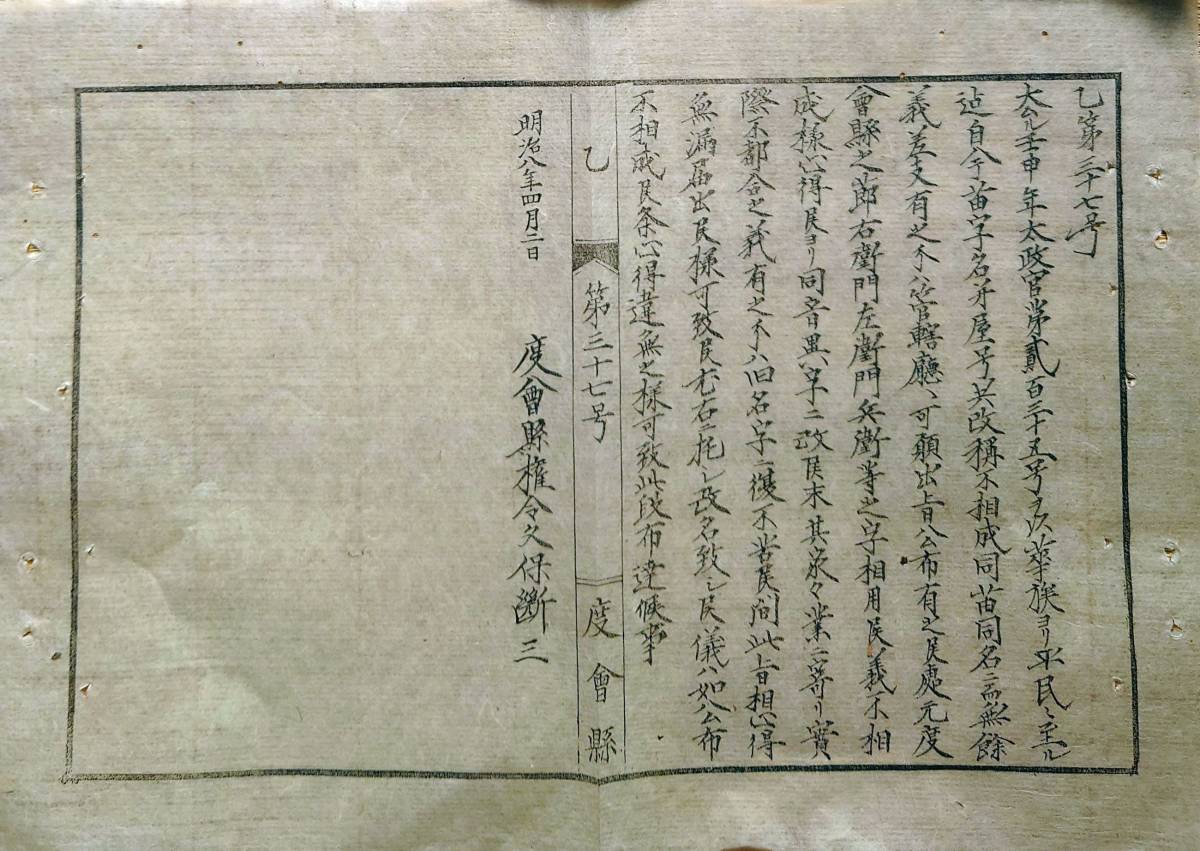 乙第三十七号
去ル壬申年太政官第貳百三十五号ヲ以華族ヨリ平民ニ至ル
迠自今苗字名并屋号共改稱不相成同苗同名ニ而無餘
義差支有之分ハ管轄廳ヘ可願出旨公布有之候處元度
會縣之節右衛門左衛門兵衛等之字相用候義不相
成様心得候ヨリ同音異字ニ改候末其家々業ニ寄リ實
際不都合之義有之分ハ旧名字ニ復不苦候間此旨相心得
無漏届出候様可致候尤右ニ托シ改名致シ候儀ハ如公布
不相成候条心得違無之様可致此段布達候事
乙
第三十七号
度會縣
明治八年四月二日
度會縣権令久保断三